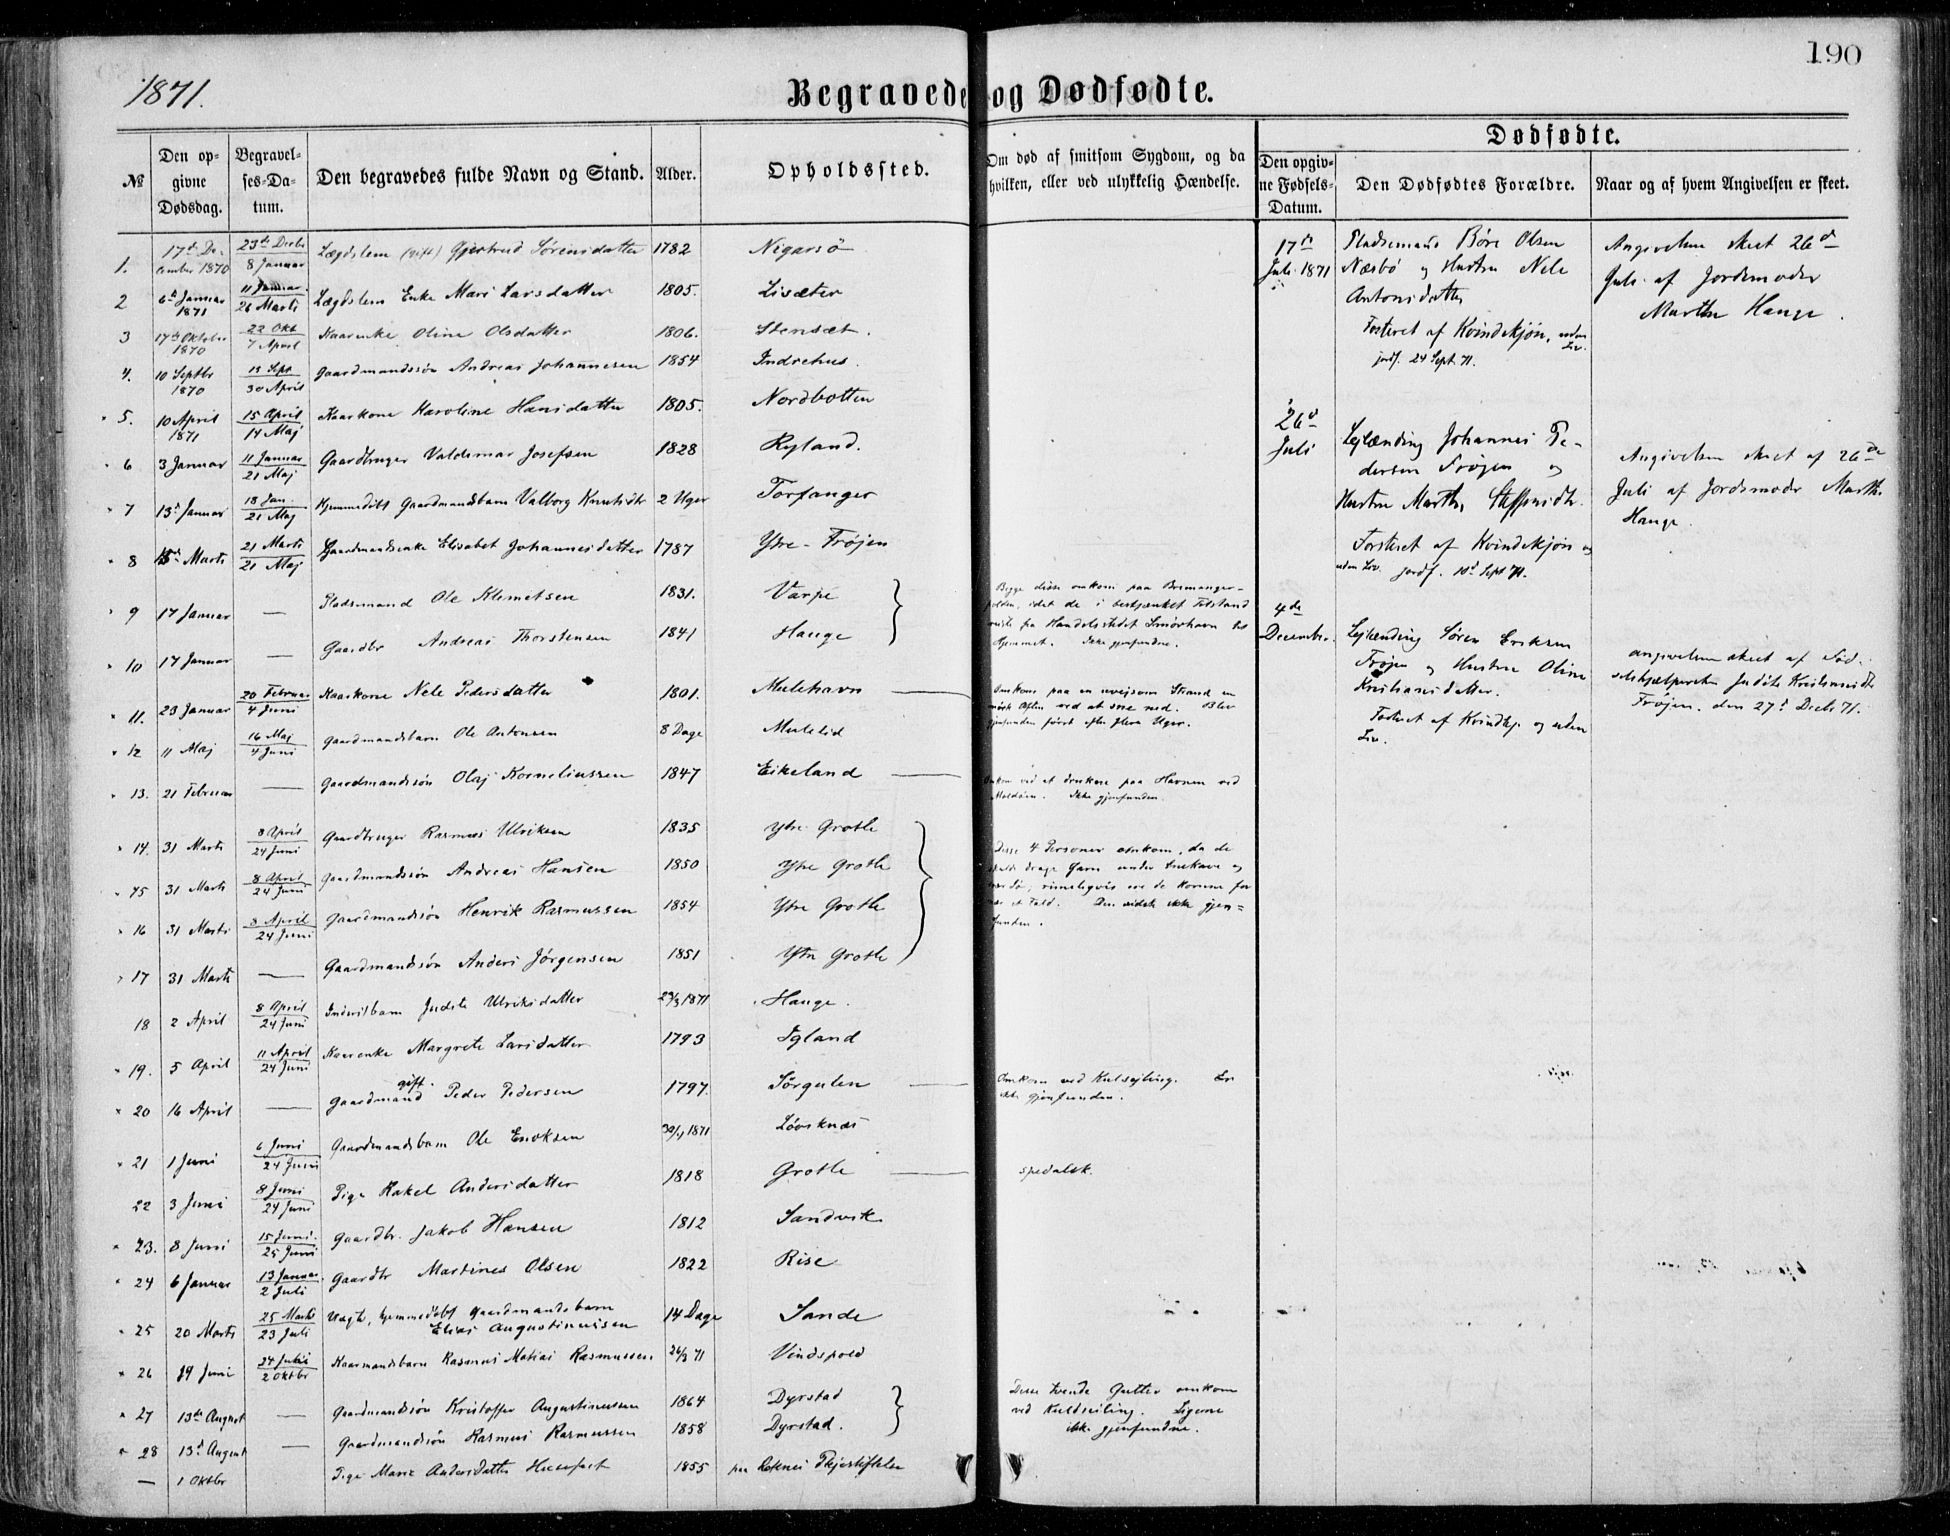 190
1871.
Begravede og Dødfødte.
Dødfødte.
№
Den op-
givne
Dødsdag.
Begravel-
ses-Da-
tum.
Den begravedes fulde Navn og Stand.
Alder.
Opholdssted.
Om død af smitsom Sygdom, og da
hvilken, eller ved ulykkelig Hændelse.
Den opgiv-
ne Fødsels-
Datum.
Den Dødfødtes Forældre.
Naar og af hvem Angivelsen er skeet.
1. 17de De-cember 1870 23de Decbr 8 Januar Lægdslem (gift) Gjertrud Sørensdatter 1782 Nigarsö
2 6te Januar 1871 11 Januar 26 Marts Lægdslem Enke Mari Larsdatter 1805. Lisæter
3 17de Oktober 1870 22 Okt 7 April Kaarenke Oline Olsdatter 1806. Stensæt.
4. 10 Septbr 1870 13 Sept 30 April Gaardmandssön Andreas Johannesen 1854 Indrehus.
5. 10 April 1871 15 April 14 Maj Kaarkone Karoline Hansdatter 1805. Nordbotten
6 3 Januar 11 Januar 21 Maj Gaardbruger Valdemar Josefsen 1828 Ryland.
7 13de Januar 18 Jan. 21 Maj Hjemmedöbt Gaardmandsbarn Valborg Knutsdtr 2 Uger Torfanger
8 15de Marts 21 Marts 21 Maj Gaardmandsenke Elisabet Johannesdatter 1787 Ytre-Fröjen
9 17 Januar — Pladsmand Ole Klemetsen 1831. Varpe
10 17 Januar — Gaardbr Andreas Thorstensen 1841 Hauge
Begge disse omkom paa Bremanger-
polden, idet de i beskjænket Tilstand
reiste fra Handelsstedet Smörhavn til
Hjemmet. Ikke gjenfundne.
11. 23 Januar 20 Februar 4 Juni Kaarkone Nele Pedersdatter 1801. Mulehavn
Omkom paa en uvejsom Strand en
mörk Aften ved at sne ned. Blev
gjenfunden först efter flere Uger.
12 11 Maj 16 Maj 4 Juni Gaardmandsbarn Ole Antonsen 8 Dage Mulelid
13. 21 Februar — Gaardmandssön Olaj Korneliussen 1847 Eikeland
Omkom ved at drukne paa Havnen ved
Maldöen. Ikke gjenfunden.
14. 31 Marts 8 April 24 Juni Gaardbruger Rasmus Ulriksen 1835 Ytre Grotle
15 31 Marts 8 April 24 Juni Gaardmandssön Andreas Hansen 1850 Ytre Grotle
16 31 Marts 8 April 24 Juni Gaardmandssön Henrik Rasmussen 1854 Ytre Grotle
17 31 Marts — Gaardmandssön Anders Jörgensen 1851 Ytre Grotle
Disse 4 Personer omkom, da de
skulde drage Garn under Snekave og
; rimeligvis ere de komne for
nær et Fald. Den sidste ikke gjen-
funden.
18 2 April 8 April 24 Juni Inderstbarn Judite Ulriksdatter 29/3 1871 Hauge.
19. 5 April 11 April 24 Juni Kaarenke Margrete Larsdatter 1793 Igland
20 16 April — Gaardmand gift. Peder Pedersen 1797. Sörgulen
Omkom ved Kulsejling. Er
ikke gjenfunden.
21 1 Juni 6 Juni 24 Juni Gaardmandsbarn Ole Enoksen 30/4 1871 Lövsknæs
22 3 Juni 8 Juni 24 Juni Pige Rakel Andersdatter 1818 Grotle spedalsk.
23. 8 Juni 15 Juni. 25 Juni Gaardbr. Jakob Hansen 1812 Sandvik
24 6 Januar 13 Januar. 2 Juli Gaardbr Martines Olsen 1822 Rise
25 20 Marts 25 Marts 23 Juli Uægte, hjemmedöbt Gaardmandsbarn
Elias Augustinussen 14 Dage Sande
26 19 Juni 24 Juni 2 Oktbr Kaarmandsbarn Rasmus Matias Rasmussen. 26/3 71 Vindspold
27 13de August — Gaardmandssön Kristoffer Augustinussen 1864 Dyrstad
28 13de August — Gaardmandssön Rasmus Rasmussen 1858 Dyrstad.
Disse tvende Gutter omkom
ved Kuldseiling. Ligene
ikke gjenfundne.
— 1 Oktbr Pige Marie Andersdatter 1855 paa Reknes Plejestiftelse
17de Juli 1871
Pladsemand Böre Olsen
Næsbö og Hustru Nele
Antonsdatter
Fosteret af Kvindekjön, uden
Liv.
jordf. 24 Sept 71.
Angivelsen skeet 26de
Juli af Jordemoder
Marthe Hauge.
26de Juli
Lejlænding Johannes Pe-
dersen Fröjen og
Hustru Marthe Steffensdtr.
Fosteret af Kvindekjön og
uden Liv. jordf. 10de Sept 71.
Angivelsen skeet af 26de
Juli af Jordemoder Marthe
Hauge.
4de Decembr.
Lejlænding Sören Eriksen
Fröjen og Hustru Oline
Kristiansdatter.
Fosteret af Kvindkj. og uden
Liv.
Angivelsen skeet af Föd-
selshjælpersken Judite Kristensdtr
Fröjen. den 27de Decbr 71.